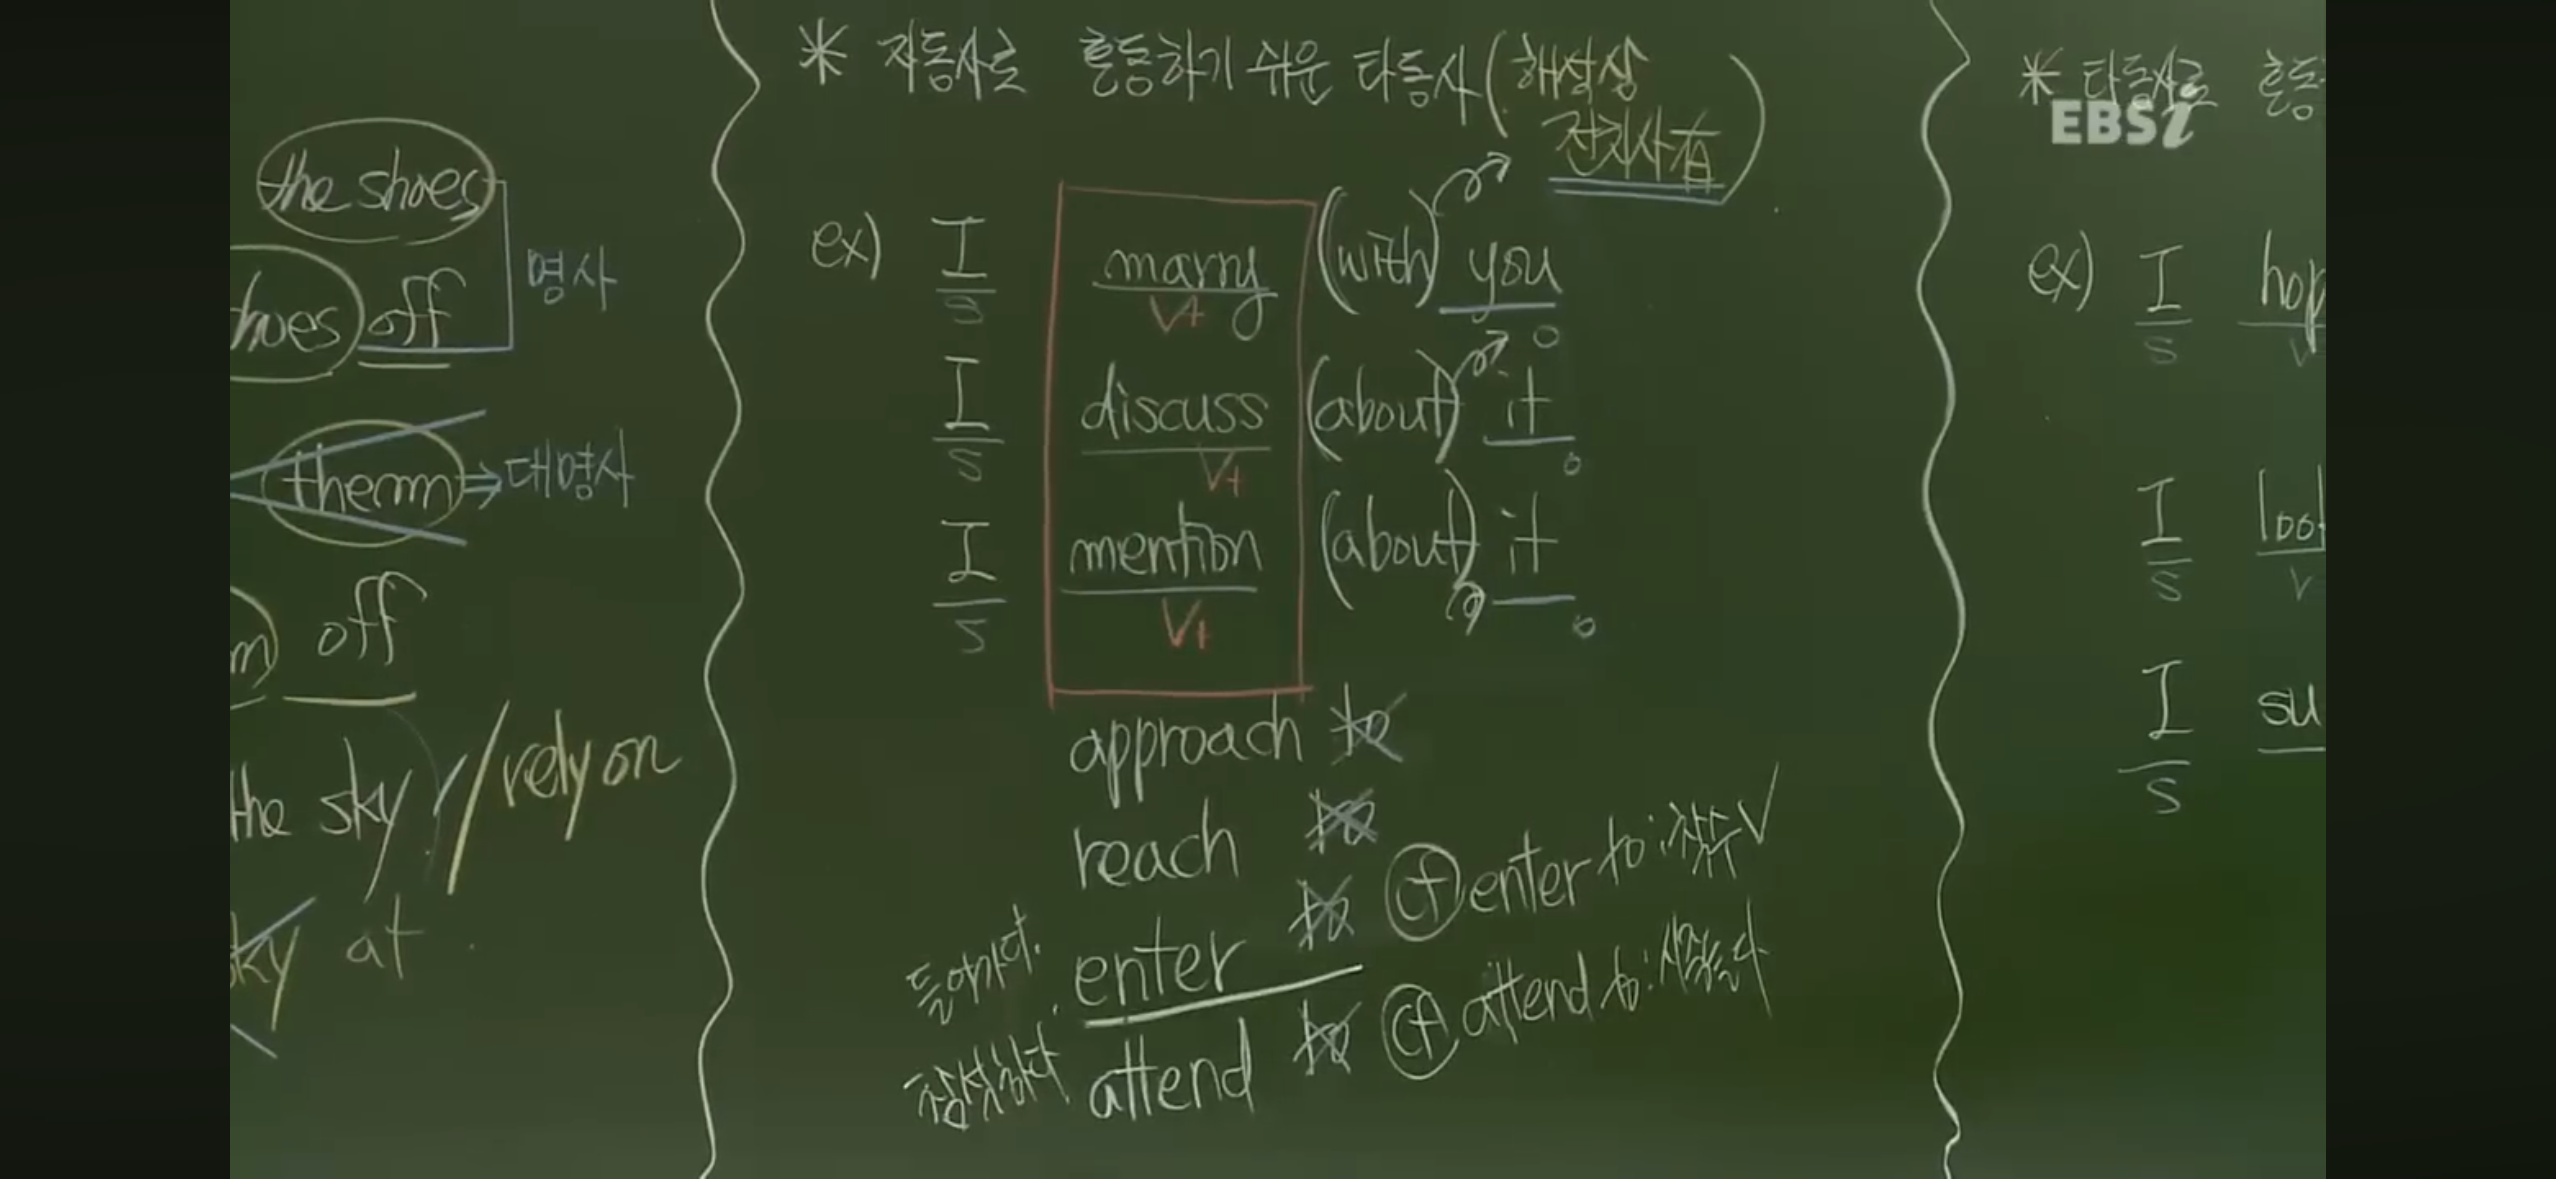 the shoes
명사
hoes off
them ⇒ 대명사
m off
the sky / rely on
sky at
* 자동사로 혼동하기 쉬운 타동사 (해석상
전치사有)
ex) I marry (with) you
S Vt O
I discuss (about) it
S Vt O
I mention (about) it
S Vt O
approach to
reach to
들어가다. enter to cf enter to : 착수
참석하다. attend to cf attend to : 시중들다
* 타동사로 혼동
EBSi
ex) I hop
S V
I look
S V
I su
S